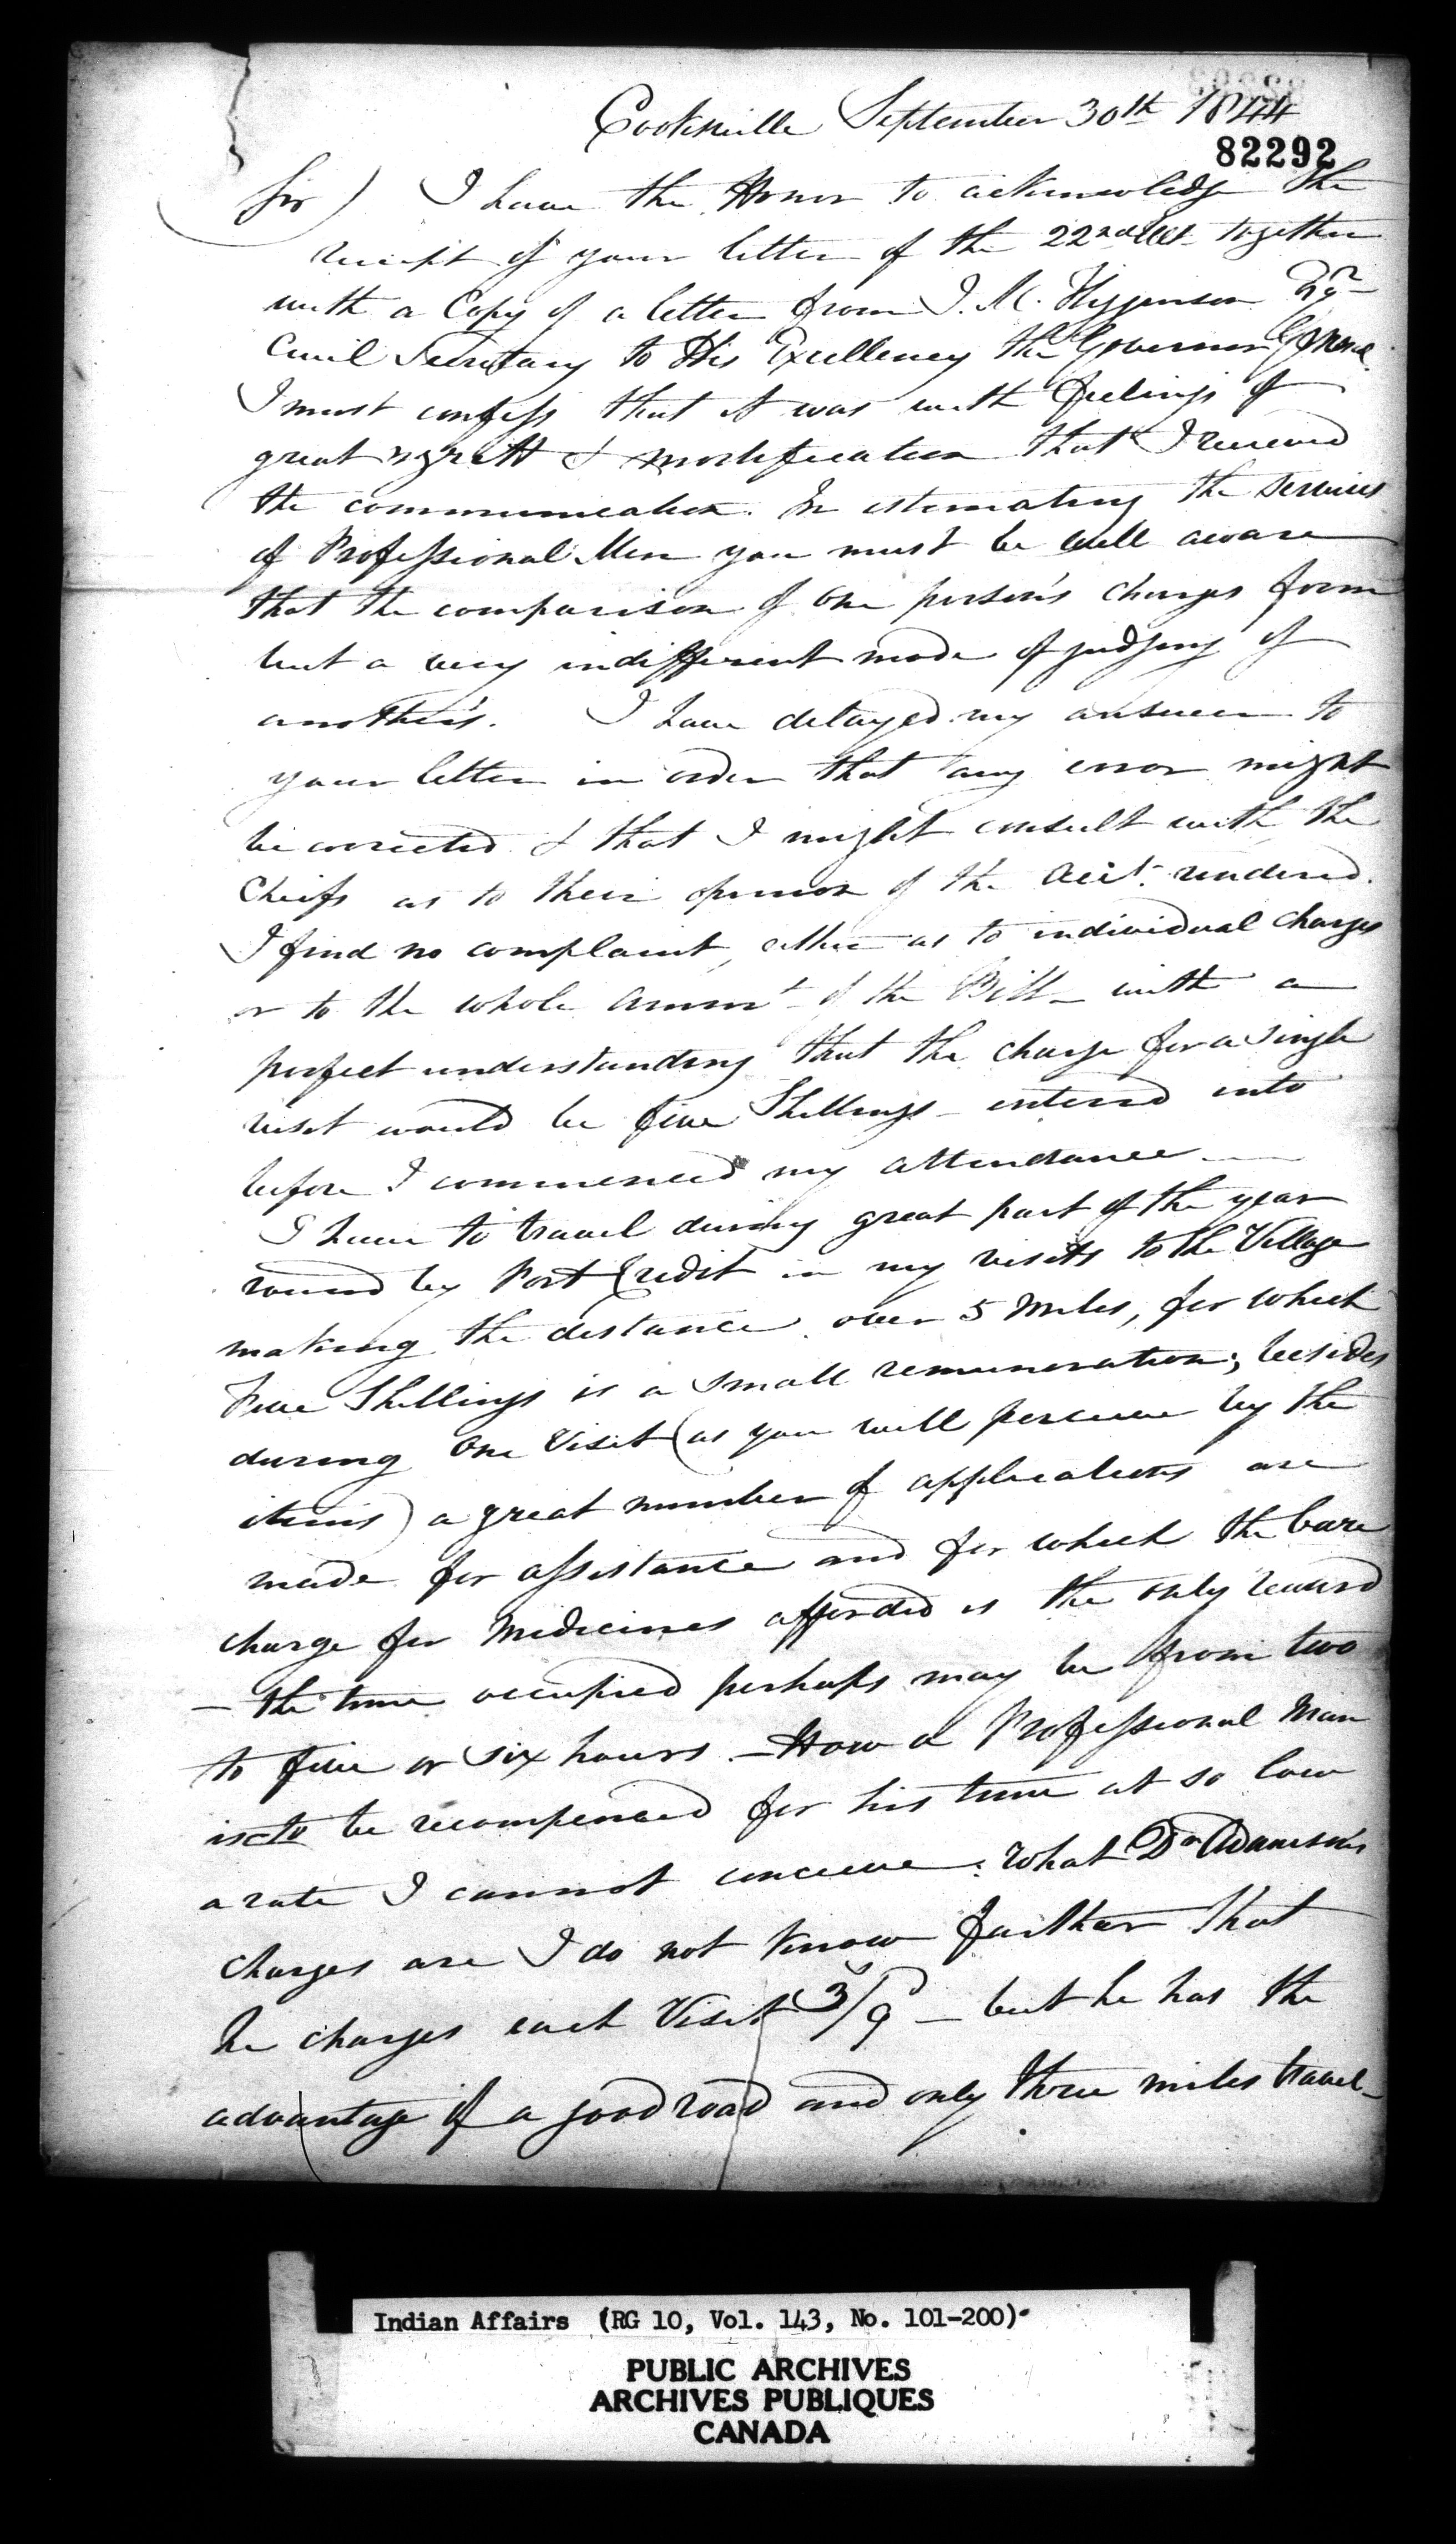 Cooksville September 30th 1844
82292
Sir) I have the Honor to acknowledge the
receipt of your letter of the 22nd Ult together
with a Copy of a letter from J. M. Higginson Esqr
Civil Secretary to His Excellency the Governor General.
I must confess that it was with feelings of
great regrett & mortification that I received
the communication. In estimating the services
of Professional Men you must be well aware
that the comparison of one person's charges form
but a very indifferent mode of judging of
another's. I have delayed my answer to
your letter in order that any error might
be corrected & that I might consult with the
Chiefs as to their opinion of the acct. rendered.
I find no complaint, either as to individual charges
or to the whole amount of the Bill – with a
perfect understanding that the charge for a single
visit would be five Shillings – entered into
before I commenced my attendance —
I have to travel during great part of the year
round by Port Credit in my visits to the Village
making the distance over 5 Miles, for which
Five Shillings is a small remuneration; besides
during One Visit (as you will perceive by the
items) a great number of applications are
made for assistance and for which the bare
charge for Medicines afforded is the only reward
— the time occupied perhaps may be from two
to five or six hours. – How a Professional Man
is to be recompensed for his time at so low
a rate I cannot conceive. What Dr Adamson's
charges are I do not know further that
he charges each Visit 3/9 – but he has the
advantage of a good road and only three miles travel –
Indian Affairs (RG 10, Vol. 143, No. 101-200)
PUBLIC ARCHIVES
ARCHIVES PUBLIQUES
CANADA